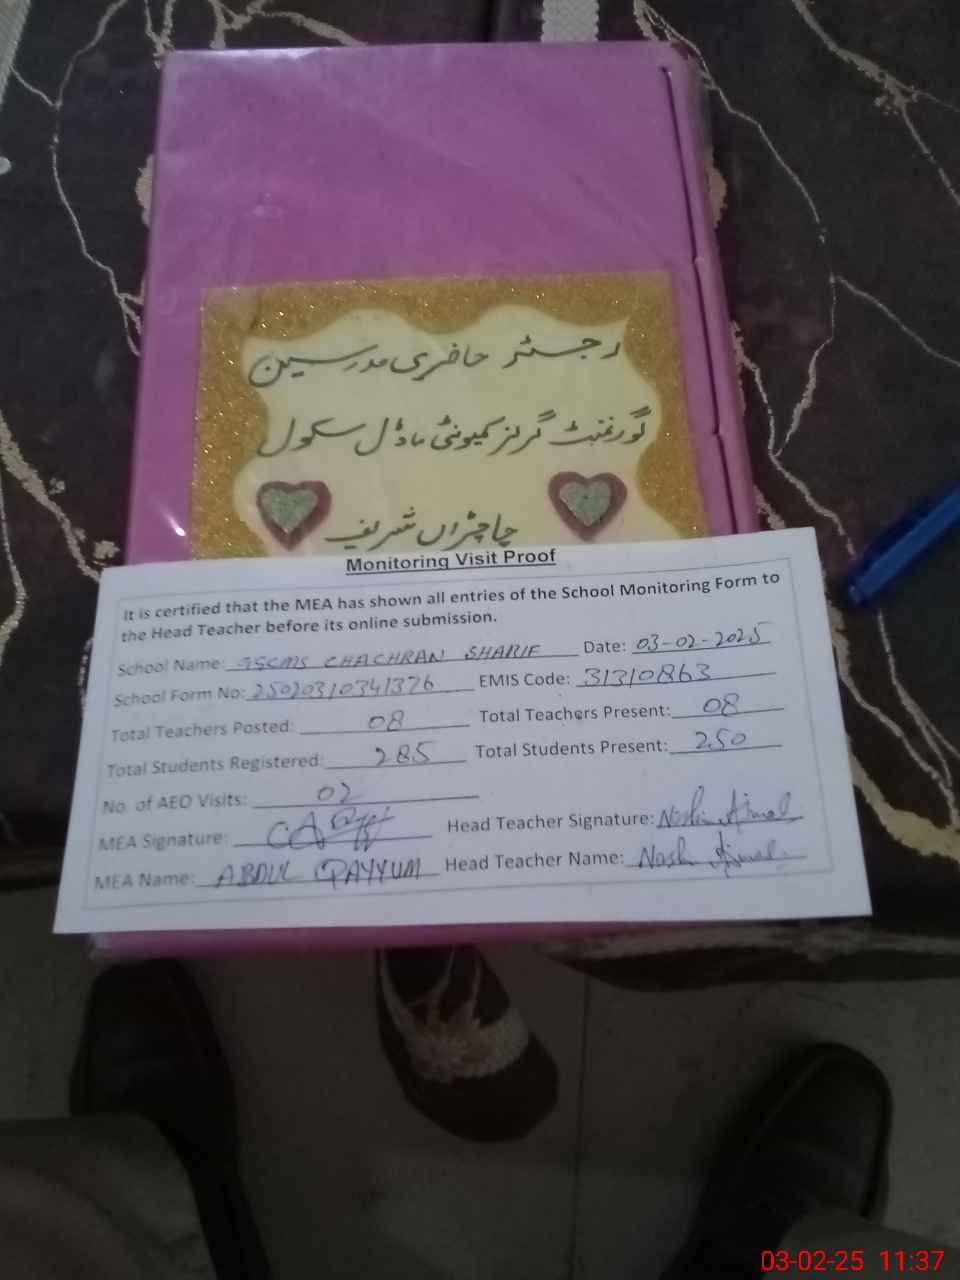 رجسٹر حاضری مدرسین
گورنمنٹ گرلز کمیونٹی ماڈل سکول
چاچڑاں شریف
Monitoring Visit Proof
It is certified that the MEA has shown all entries of the School Monitoring Form to
the Head Teacher before its online submission.
School Name: GGCMS CHACHRAN SHARIF Date: 03-02-2025
School Form No: 25020310341376 EMIS Code: 31310863
Total Teachers Posted: 08 Total Teachers Present: 08
Total Students Registered: 285 Total Students Present: 250
No. of AEO Visits: 02
MEA Signature: Head Teacher Signature:
MEA Name: ABDUL QAYYUM Head Teacher Name:
03-02-25 11:37